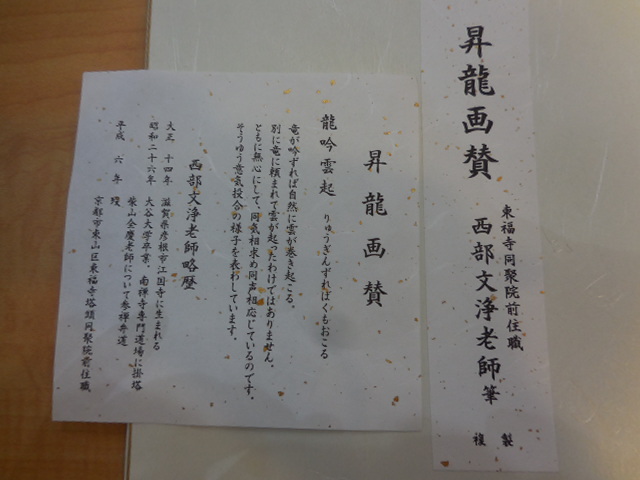 昇龍画賛
東福寺同聚院前住職
西部文浄老師筆
複製
昇龍画賛
龍吟雲起 りゅうぎんずればくもおこる
竜が吟ずれば自然に雲が巻き起こる。
別に竜に頼まれて雲が起ったわけではありません。
ともに無心にして、同気相求め同声相応じているのです。
そういう意気投合の様子を表わしています。
西部文浄老師略歴
大正 十四年 滋賀県彦根市江国寺に生まれる
昭和二十六年 大谷大学卒業。南禅寺専門道場に掛塔
柴山全慶老師について参禅弁道
平成 六 年 残
京都市東山区東福寺塔頭同聚院前住職